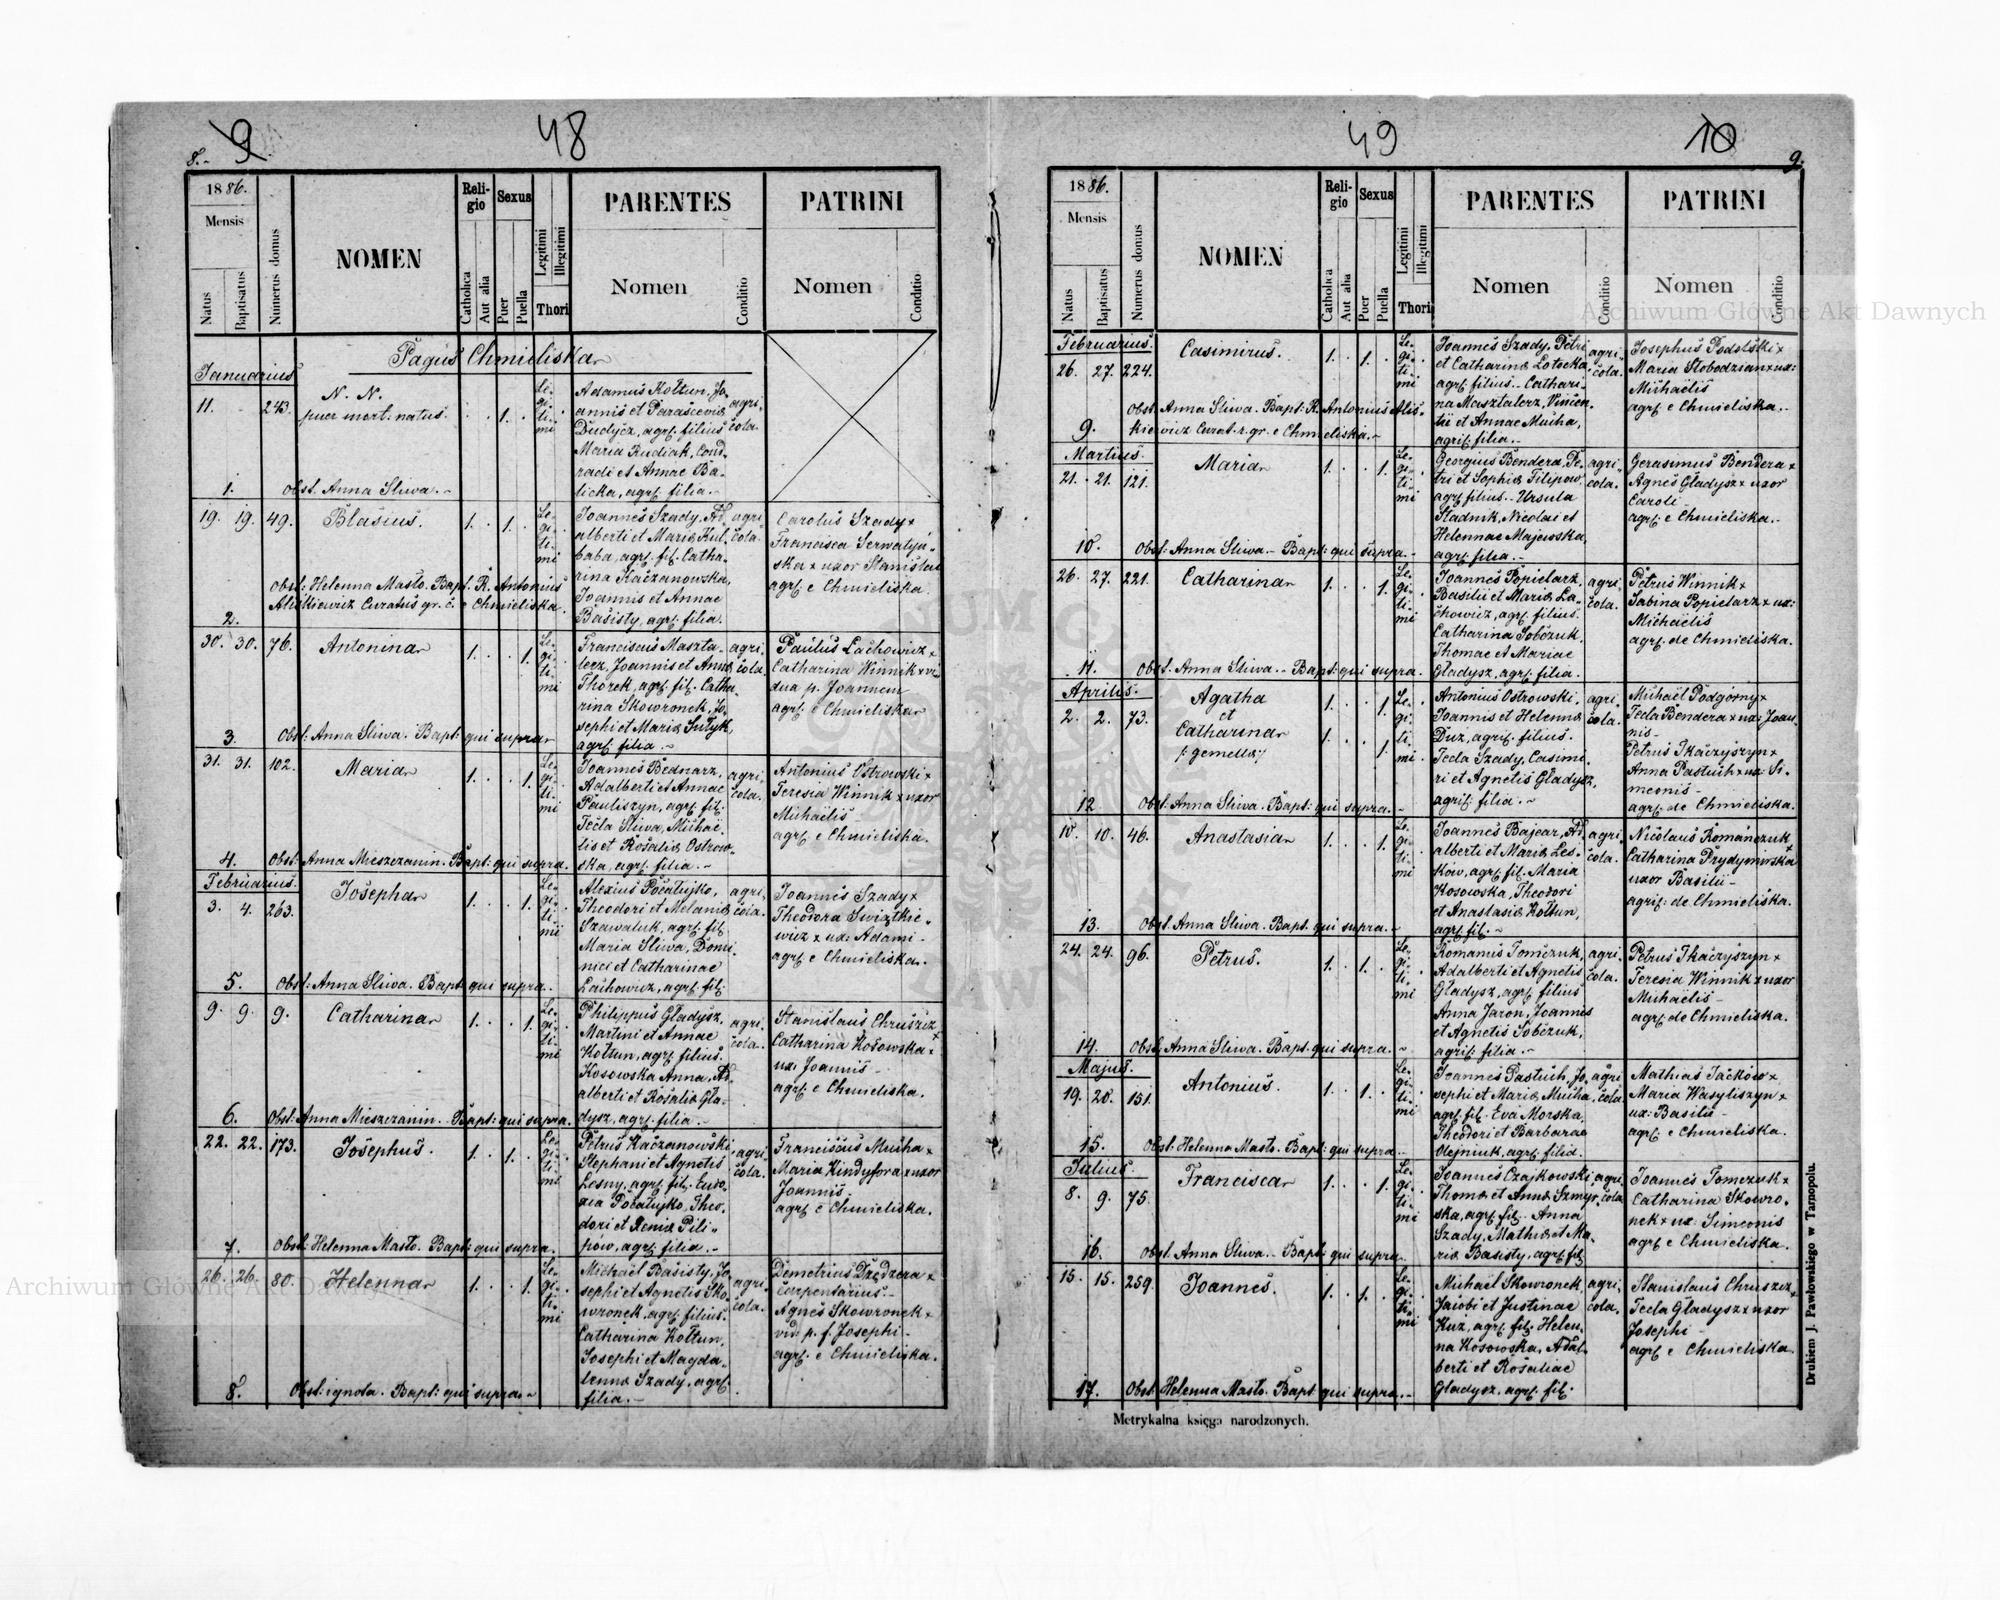 8.- 9 48
1886.
Mensis
Natus
Baptisatus
Numerus domus
NOMEN
Religio
Catholica
Aut alia
Sexus
Puer
Puella
Legitimi
Illegitimi
Thori
PARENTES
Nomen
Conditio
PATRINI
Nomen
Conditio
Pagus Chmieliska
Januarius
11. 243. N. N.
puer mort: natus. 1. Legitimi
Adamus Kołtun, Jo-
annis et Parascevia
Dudycz, agr: filius
Maria Rudiak, Cond-
radi et Annae Ba-
licka, agr: filia.-
agricola.
1. Obst. Anna Sliwa.-
19. 19. 49. Blasius. 1. 1. Legitimi
Joannes Szady, Ad-
alberti et Maria Kul-
baba, agr: fil: Catha-
rina Kaczanowska,
Joannis et Annae
Basisty, agr: filia.
agricola.
Carolus Szady x
Francisca Serwatyń-
ska x uxor Stanislai
agr: e Chmieliska.
Obst: Helenna Masło. Bapt. R. Antonius
Aliśkiewicz Curatus gr. c. e Chmieliska.
2.
30. 30. 76. Antonina 1. 1. Legitimi
Franciscus Maszta-
lerz, Joannis et Anna
Thorek, agr: fil: Catha-
rina Skowronek, Jo-
sephi et Maria Sutyk,
agr: filia.-
agricola.
Paulus Lachowicz x
Catharina Winnik x vi-
dua p. Joannem
agr: e Chmieliska
3. Obst: Anna Sliwa. Bapt: qui supra
31. 31. 102. Maria 1. 1. Legitimi
Joannes Bednarz,
Adalberti et Annae
Pauliszyn, agr: fil:
Tecla Sliwa, Michae-
lis et Rosalia Ostrow-
ska, agr: filia.-
agricola.
Antonius Ostrowski x
Teresia Winnik x uxor
Michaelis-
agr: e Chmieliska.
4. Obst: Anna Mieszczanin. Bapt: qui supra.
Februarius.
3. 4. 263. Josepha 1. 1. Legitimi
Alexius Poczatujko,
Theodori et Melania
Szawaluk, agr: fil:
Maria Sliwa, Domi-
nici et Catharinae
Lachowicz, agr: fil:
agricola.
Joannes Szady x
Theodora Swiątkie-
wicz x ux: Adami-
agr: e Chmieliska.
5. Obst: Anna Sliwa. Bapt: qui supra.
9. 9. 9. Catharina 1. 1. Legitimi
Philippus Gładysz,
Martini et Annae
Kołtun, agr: filius.
Kosowska Anna, Ad-
alberti et Rosalia Gła-
dysz, agr: filia.-
agricola.
Stanislaus Chruszcz x
Catharina Kosowska x
ux: Joannis-
agr: e Chmieliska.
6. Obst: Anna Mieszczanin. Bapt: qui supra.
22. 22. 173. Josephus. 1. 1. Legitimi
Petrus Kaczanowski,
Stephani et Agnetis
Lesny, agr: fil: Eudo-
xia Poczatujko, Theo-
dori et Xenia Pili-
pów, agr: filia.-
agricola.
Franciscus Mucha x
Maria Kindyfora x uxor
Joannis.
agr: e Chmieliska.
7. Obst: Helenna Masło. Bapt: qui supra.
26. 26. 80. Helenna 1. 1. Legitimi
Michael Basisty, Jo-
sephi et Agnetis Sko-
wronek, agr: filius.
Catharina Kołtun,
Josephi et Magda-
lenna Szady, agr:
filia.-
agricola.
Demetrius Dzedzera x
carpentarius-
Agnes Skowronek x
vid: p. f. Josephi-
agr: e Chmieliska.
8. Obst: ignota. Bapt: qui supra.-
49 10 9.
1886.
Mensis
Natus
Baptisatus
Numerus domus
NOMEN
Religio
Catholica
Aut alia
Sexus
Puer
Puella
Legitimi
Illegitimi
Thori
PARENTES
Nomen
Conditio
PATRINI
Nomen
Conditio
Februarius.
26. 27. 224. Casimirus. 1. 1. Legitimi
Joannes Szady, Petri
et Catharina Lotocka
agr: filius.- Cathari-
na Masztalerz, Vincen-
tii et Annae Mucha,
agr: filia.-
agricola.
Josephus Podolski x
Maria Słobodzian x ux:
Michaelis
agr: e Chmieliska.-
Obst: Anna Sliwa. Bapt: R. Antonius Aliś-
kiewicz Curat. r. gr. e Chmieliska.-
9.
Martius.
21. 21. 121. Maria 1. 1. Legitimi
Georgius Bendera, Pe-
tri et Sophia Filipow,
agr: filius.- Ursula
Stadnik, Nicolai et
Helennae Majewska,
agr: filia.-
agricola.
Gerasimus Bendera x
Agnes Gładysz x uxor
Caroli.
agr: e Chmieliska.-
10. Obst: Anna Sliwa.- Bapt: qui supra.-
26. 27. 221. Catharina 1. 1. Legitimi
Joannes Popielarz,
Basilii et Maria La-
chowicz, agr: filius.
Catharina Sobczuk,
Thomae et Mariae
Gładysz, agr: filia.
agricola.
Petrus Winnik x
Sabina Popielarz x ux:
Michaelis
agr: de Chmieliska.
11. Obst. Anna Sliwa.- Bapt: qui supra.
Aprilis.
2. 2. 73. Agatha
et
Catharina
/: gemella :/
1. 1.
1. 1.
Legitimi
Antonius Ostrowski,
Joannis et Helenna
Duz, agr: filius.
Tecla Szady, Casimi-
ri et Agnetis Gładysz,
agr: filia.-
agricola.
Michael Podgórny x
Tecla Bendera x ux: Joan-
nis-
Petrus Tkaczyszyn x
Anna Pastuch x ux: Si-
meonis-
agr: de Chmieliska.
12 Obst: Anna Sliwa. Bapt: qui supra.-
10. 10. 46. Anastasia 1. 1. Legitimi
Joannes Bajcar, Ad-
alberti et Maria Les-
ków, agr: fil: Maria
Kosowska, Theodori
et Anastasia Kołtun,
agr: fil:-
agricola.
Nicolaus Romańczuk x
Catharina Prydymirska
uxor Basilii-
agr: de Chmieliska.
13. Obst: Anna Sliwa. Bapt: qui supra.-
24. 24. 96. Petrus. 1. 1. Legitimi
Romanus Tomczuk,
Adalberti et Agnetis
Gładysz, agr: filius
Anna Jaron, Joannis
et Agnetis Sobczuk,
agr: filia.-
agricola.
Petrus Tkaczyszyn x
Teresia Winnik x uxor
Michaelis-
agr: de Chmieliska.
14. Obst: Anna Sliwa. Bapt: qui supra.-
Majus.
19. 20. 151. Antonius. 1. 1. Legitimi
Joannes Pastuch, Jo-
sephi et Maria Mucha,
agr: fil: Eva Morska
Theodori et Barbarae
Olejniuk, agr: filia.
agricola
Mathias Jacków x
Maria Wasyliszyn x
ux: Basilii-
agr: e Chmieliska.
15. Obst: Helenna Masło. Bapt: qui supra.-
Julius.
8. 9. 75. Francisca 1. 1. Legitimi
Joannes Czajkowski,
Thoma et Anna Szmyr-
ska, agr: fil: Anna
Szady, Mathia et Ma-
ria Basisty, agr: fil:
agricola
Joannes Tomczuk x
Catharina Skowro-
nek x ux: Simeonis
agr: e Chmieliska.
16. Obst: Anna Sliwa.- Bapt: qui supra.
15. 15. 259. Joannes. 1. 1. Legitimi
Michael Skowronek,
Jacobi et Justinae
Kuz, agr: fil: Helen-
na Kosowska, Adal-
berti et Rosaliae
Gładysz, agr: fil:
agricola.
Stanislaus Chruszcz x
Tecla Gładysz x uxor
Josephi-
agr: e Chmieliska.
17. Obst: Helenna Masło. Bapt: qui supra.-
Metrykalna księga narodzonych.
Drukiem J. Pawłowskiego w Tarnopolu.
Archiwum Główne Akt Dawnych
Archiwum Główne Akt Dawnych